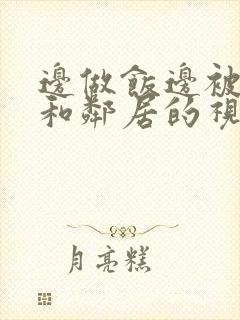 邊做飯邊被
和鄰居的視
月亮糕